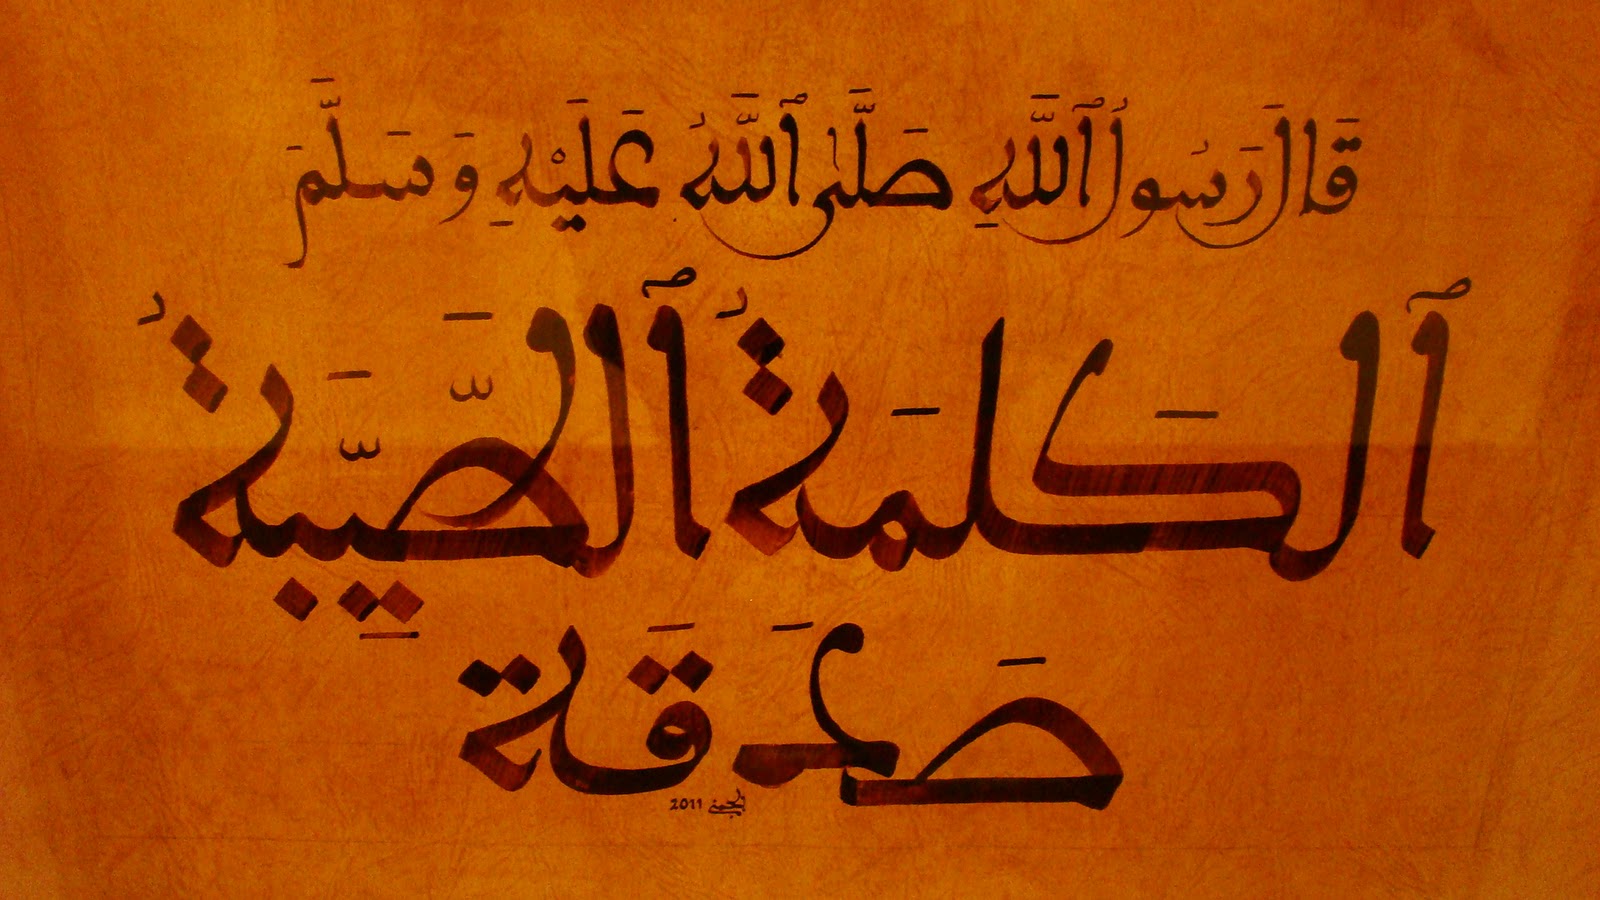 قَالَ رَسُولُ ٱللَّهِ صَلَّىٰ ٱللَّهُ عَلَيْهِ وَسَلَّمَ
ٱلْكَلِمَةُ ٱلطَّيِّبَةُ
صَدَقَة
2011